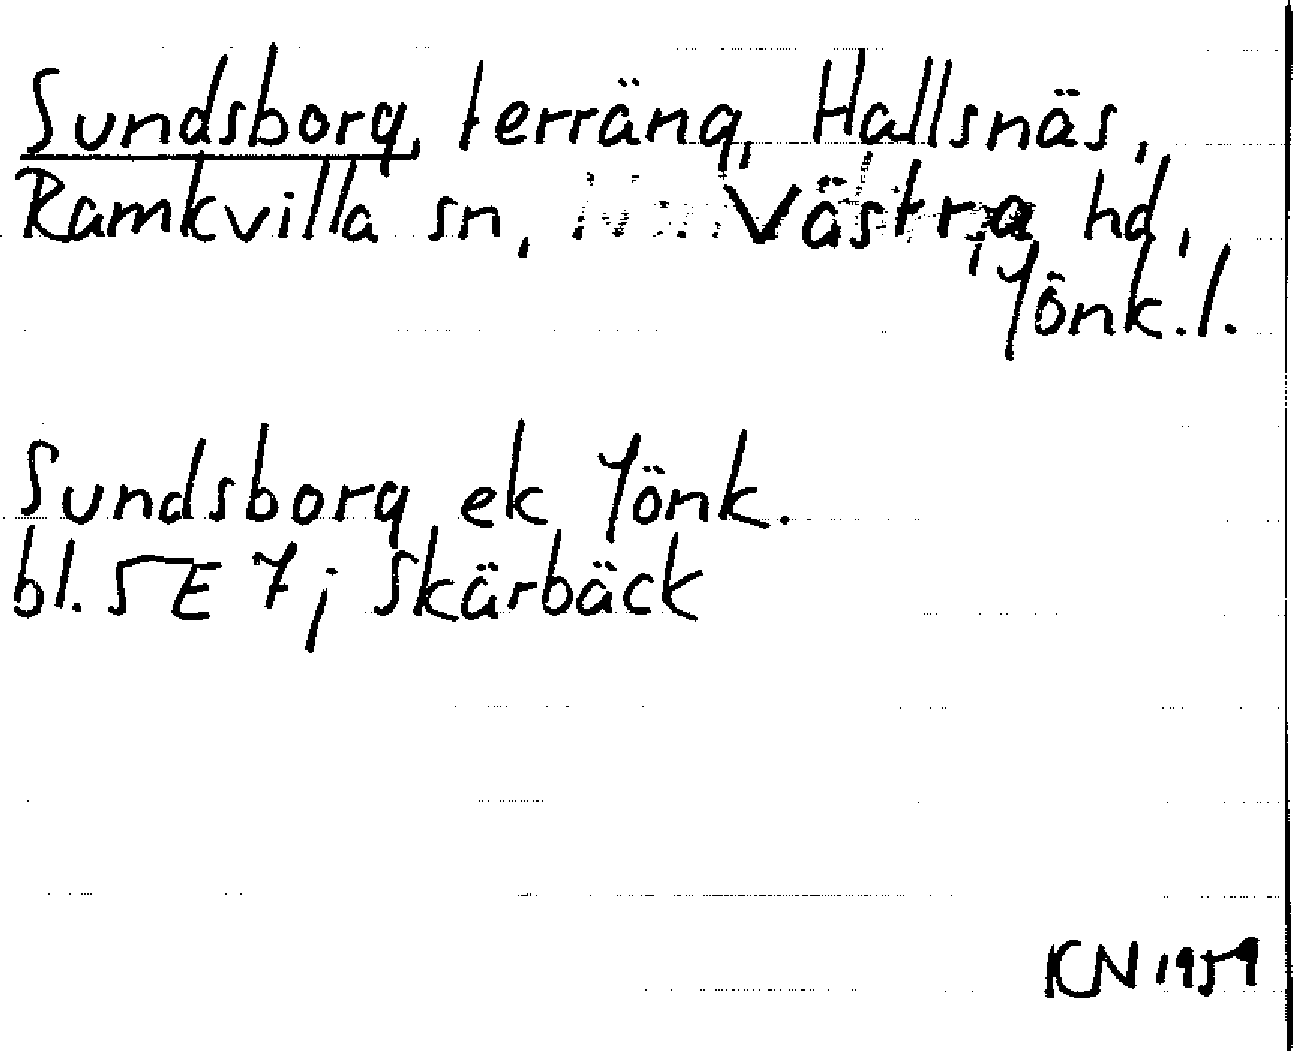 Sundsborg, terräng, Hallsnäs,
Ramkvilla sn, Västra hd,
Jönk.l.
Sundsborg ek Jönk.
bl. 5E 7; Skärbäck
KN 1959